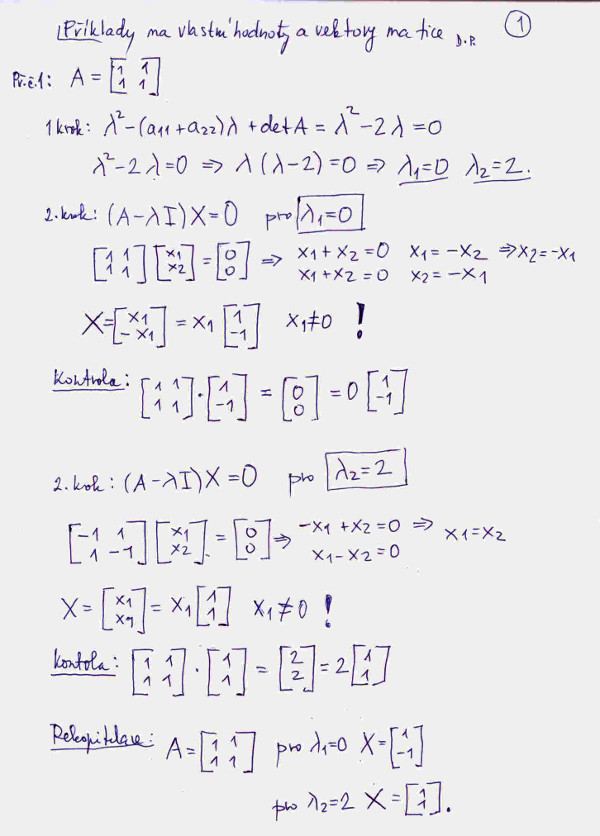 Příklady na vlastní hodnoty a vektory matice D.P. 1
Př.č.1: A = [1 1; 1 1]
1 krok: λ² - (a11 + a22)λ + det A = λ² - 2λ = 0
λ² - 2λ = 0 ⇒ λ(λ - 2) = 0 ⇒ λ1 = 0 λ2 = 2.
2. krok: (A - λI)X = 0 pro λ1 = 0
[1 1; 1 1] [x1; x2] = [0; 0] ⇒ x1 + x2 = 0 x1 = -x2 ⇒ x2 = -x1
x1 + x2 = 0 x2 = -x1
X = [x1; -x1] = x1 [1; -1] x1 ≠ 0 !
Kontrola: [1 1; 1 1] · [1; -1] = [0; 0] = 0 [1; -1]
2. krok: (A - λI)X = 0 pro λ2 = 2
[-1 1; 1 -1] [x1; x2] = [0; 0] ⇒ -x1 + x2 = 0 ⇒ x1 = x2
x1 - x2 = 0
X = [x1; x1] = x1 [1; 1] x1 ≠ 0 !
Kontola: [1 1; 1 1] · [1; 1] = [2; 2] = 2 [1; 1]
A = [1 1; 1 1] pro λ1 = 0 X = [1; -1]
pro λ2 = 2 X = [1; 1].